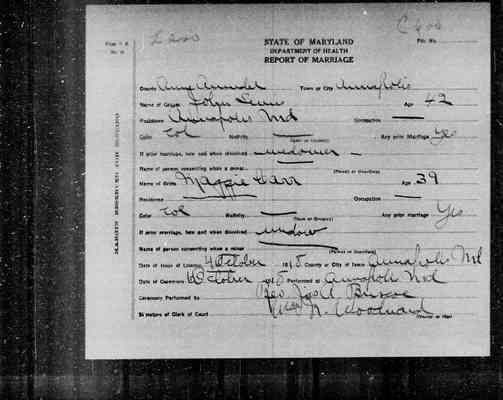 STATE OF MARYLAND
DEPARTMENT OF HEALTH
REPORT OF MARRIAGE
File No.
County Anne Arundel Town or City Annapolis
Name of Groom John Age 42
Residence Annapolis Md Occupation —
Color Col Nativity — Any prior Marriage Yes
If prior marriage, how and when dissolved widower —
Name of person consenting when a minor (Parent or Guardian)
Name of Bride Maggie Carr Age 39
Residence Occupation —
Color Col Nativity — Any prior marriage Yes
(State or Country)
If prior marriage, how and when dissolved widow
Name of person consenting when a minor (Parent or Guardian)
Date of Issue of License 4 October 191 County or City of Issue Annapolis Md
Date of Ceremony October 191 Performed at Annapolis Md
Ceremony Performed by Rev Briscoe
Signature of Clerk of Court N. Woodward
MARGIN RESERVED FOR BINDING